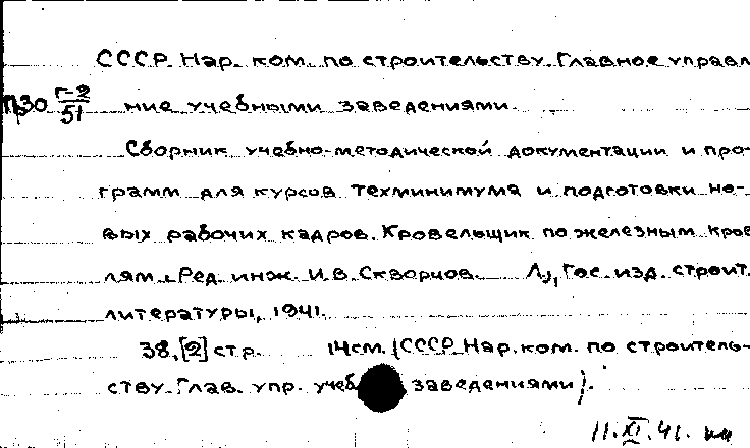 СССР. Нар. ком. по строительству. Главное управл
Пр30 Г-2/51 ние учебными заведениями.
Сборник учебно-методической документации и про-
грамм для курсов техминимума и подготовки но-
вых рабочих кадров. Кровельщик по железным кров
лям. Ред. инж. И.В. Скворцов. Л., Гос. изд. строит.
литературы, 1941.
38, [2] стр. 14см. (СССР. Нар. ком. по строитель-
ству. Глав. упр. учеб заведениями).
11.XI.41.